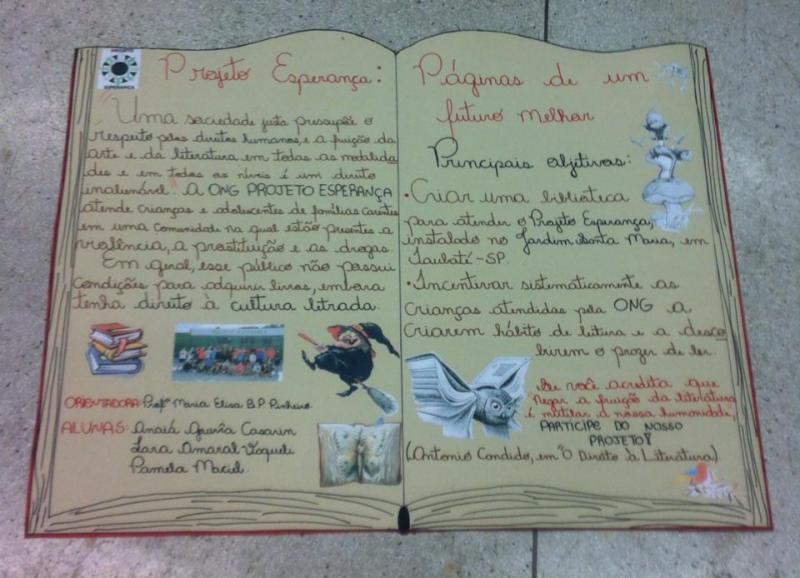 PROJETO
ESPERANÇA
Projeto Esperança:
"Uma sociedade justa pressupõe o
respeito pelos direitos humanos, e a fruição da
arte e da literatura em todas as modalida
des e em todos os níveis é um direito
inalienável". A ONG PROJETO ESPERANÇA
atende crianças e adolescentes de famílias carentes
em uma comunidade na qual estão presentes a
violência, a prostituição e as drogas.
Em geral, esse público não possui
condições para adquirir livros, embora
tenha direito à cultura letrada.
ORIENTADORA: Profª Maria Elisa B.P. Pinheiro
ALUNAS: Anaiá Casarin
Lara Amaral
Pamela Maciel
Páginas de um
futuro melhor
Principais objetivos:
• Criar uma biblioteca
para atender o Projeto Esperança,
instalado no Jardim Santa Maria, em
Taubaté-SP.
• Incentivar sistematicamente as
crianças atendidas pela ONG a
criarem hábito de leitura e a desco
birem o prazer de ler.
Se você acredita que
negar a fruição da literatura
é mutilar a nossa humanidade,
PARTICIPE DO NOSSO
PROJETO!
(Antonio Candido, em "O Direito à Literatura).